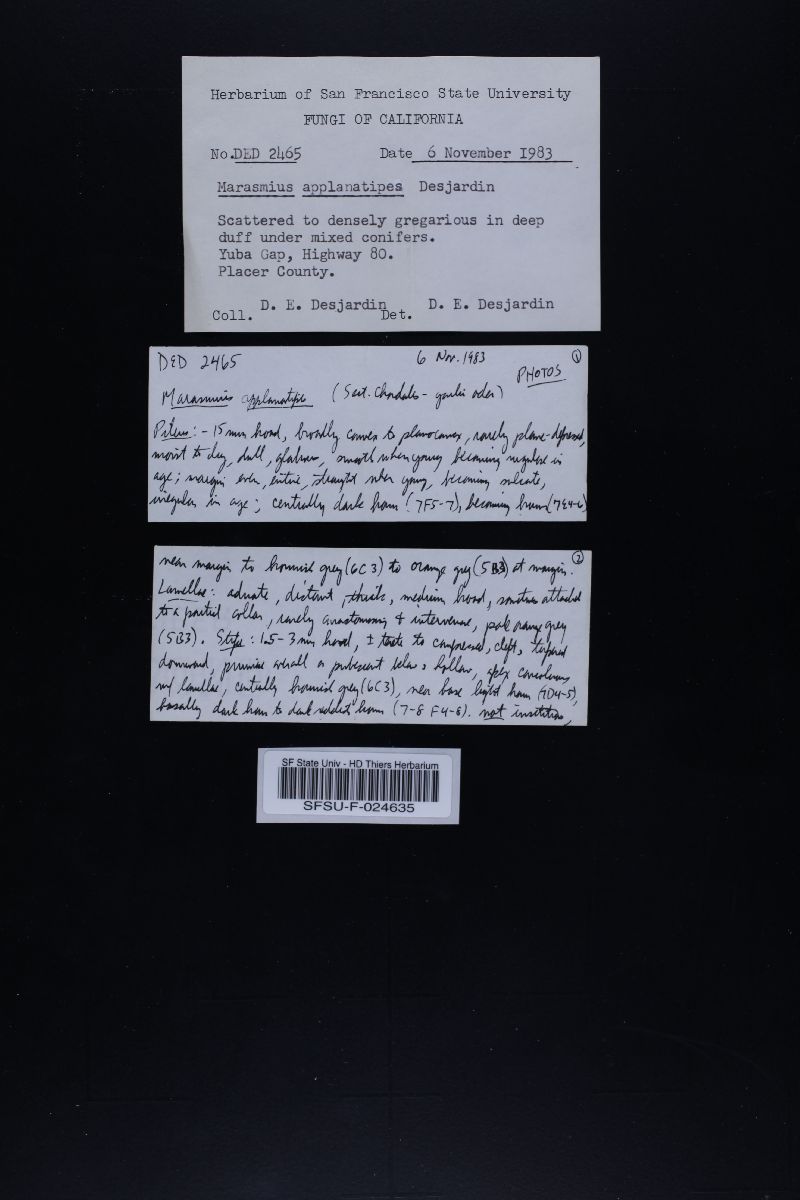 Herbarium of San Francisco State University
FUNGI OF CALIFORNIA
No. DED 2465 Date 6 November 1983
Marasmius applanatipes Desjardin
Scattered to densely gregarious in deep
duff under mixed conifers.
Yuba Gap, Highway 80.
Placer County.
Coll. D. E. Desjardin Det. D. E. Desjardin
DED 2465 6 Nov. 1983 1
PHOTOS
Marasmius applanatipes (Sect. Chordales - garlic odor)
Pileus: - 15 mm broad, broadly convex to planoconvex, rarely plane-depressed,
moist to dry, dull, glabrous, smooth when young becoming rugulose in
age; margin even, entire, straight when young, becoming sulcate,
irregular in age; centrally dark brown (7F5-7), becoming brown (7E4-6)
2
near margin to brownish grey (6C3) to orange grey (5B3) at margin.
Lamellae: adnate, distant, thick, medium broad, sometimes attached
to a partial collar, rarely anastomosing & intervenose, pale orange grey
(5B3). Stipe: 1.5-3 mm broad, ± terete to compressed, cleft, tapered
downward, pruinose overall or pubescent below, hollow, apex concolorous
w/ lamellae, centrally brownish grey (6C3), near base light brown (7D4-5),
basally dark brown to dark reddish brown (7-8 F4-8). not insititious,
SF State Univ - HD Thiers Herbarium
SFSU-F-024635